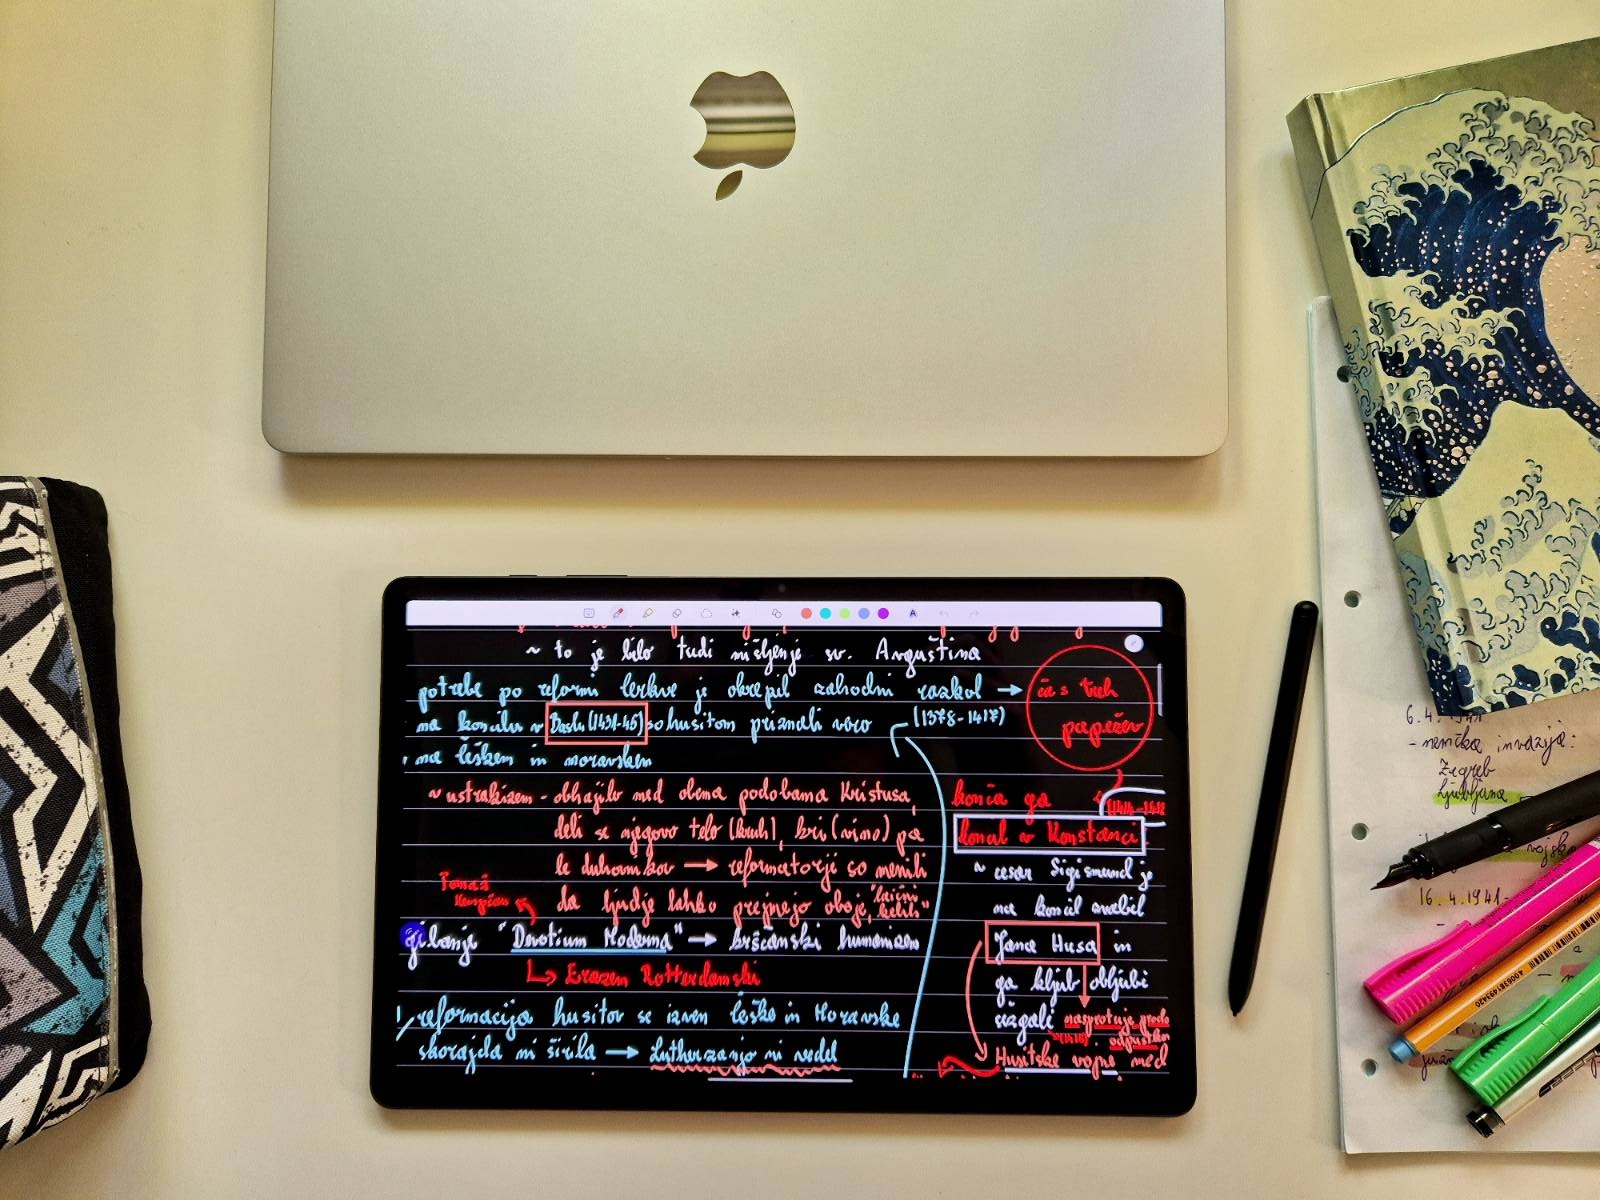 ~ to je bilo tudi mišljenje sv. Avguština
potrebe po reformi cerkve je okrepil zahodni razkol →
(1378-1417)
čas treh
papežev
na koncilu v Baslu (1431-45) so husitom priznali vero
na češkem in moravskem
~ ustrakizem - obhajilo med obema podobama Kristusa,
deli se njegovo telo (kruh), kri (vino) pa
le duhovnikov → reformatorji so menili
da ljudje lahko prejmejo oboje,
Tomaž
Kempčan
gibanje "Devotium Moderna" → krščanski humanizem
↳ Erazem Rotterdamski
reformacija husitov se izven češke in Moravske
skorajda ni širila → Luther zanjo ni vedel
konča ga
koncil v Konstanci
~ cesar Sigismund je
na koncil zvabil
Jana Husa in
ga kljub obljubi
sežgali
nasprotuje
Husitske vojne med
6.4.1941
- nemška invazija:
Zagreb
Ljubljana
vojske
16.4.1941
4006381493420